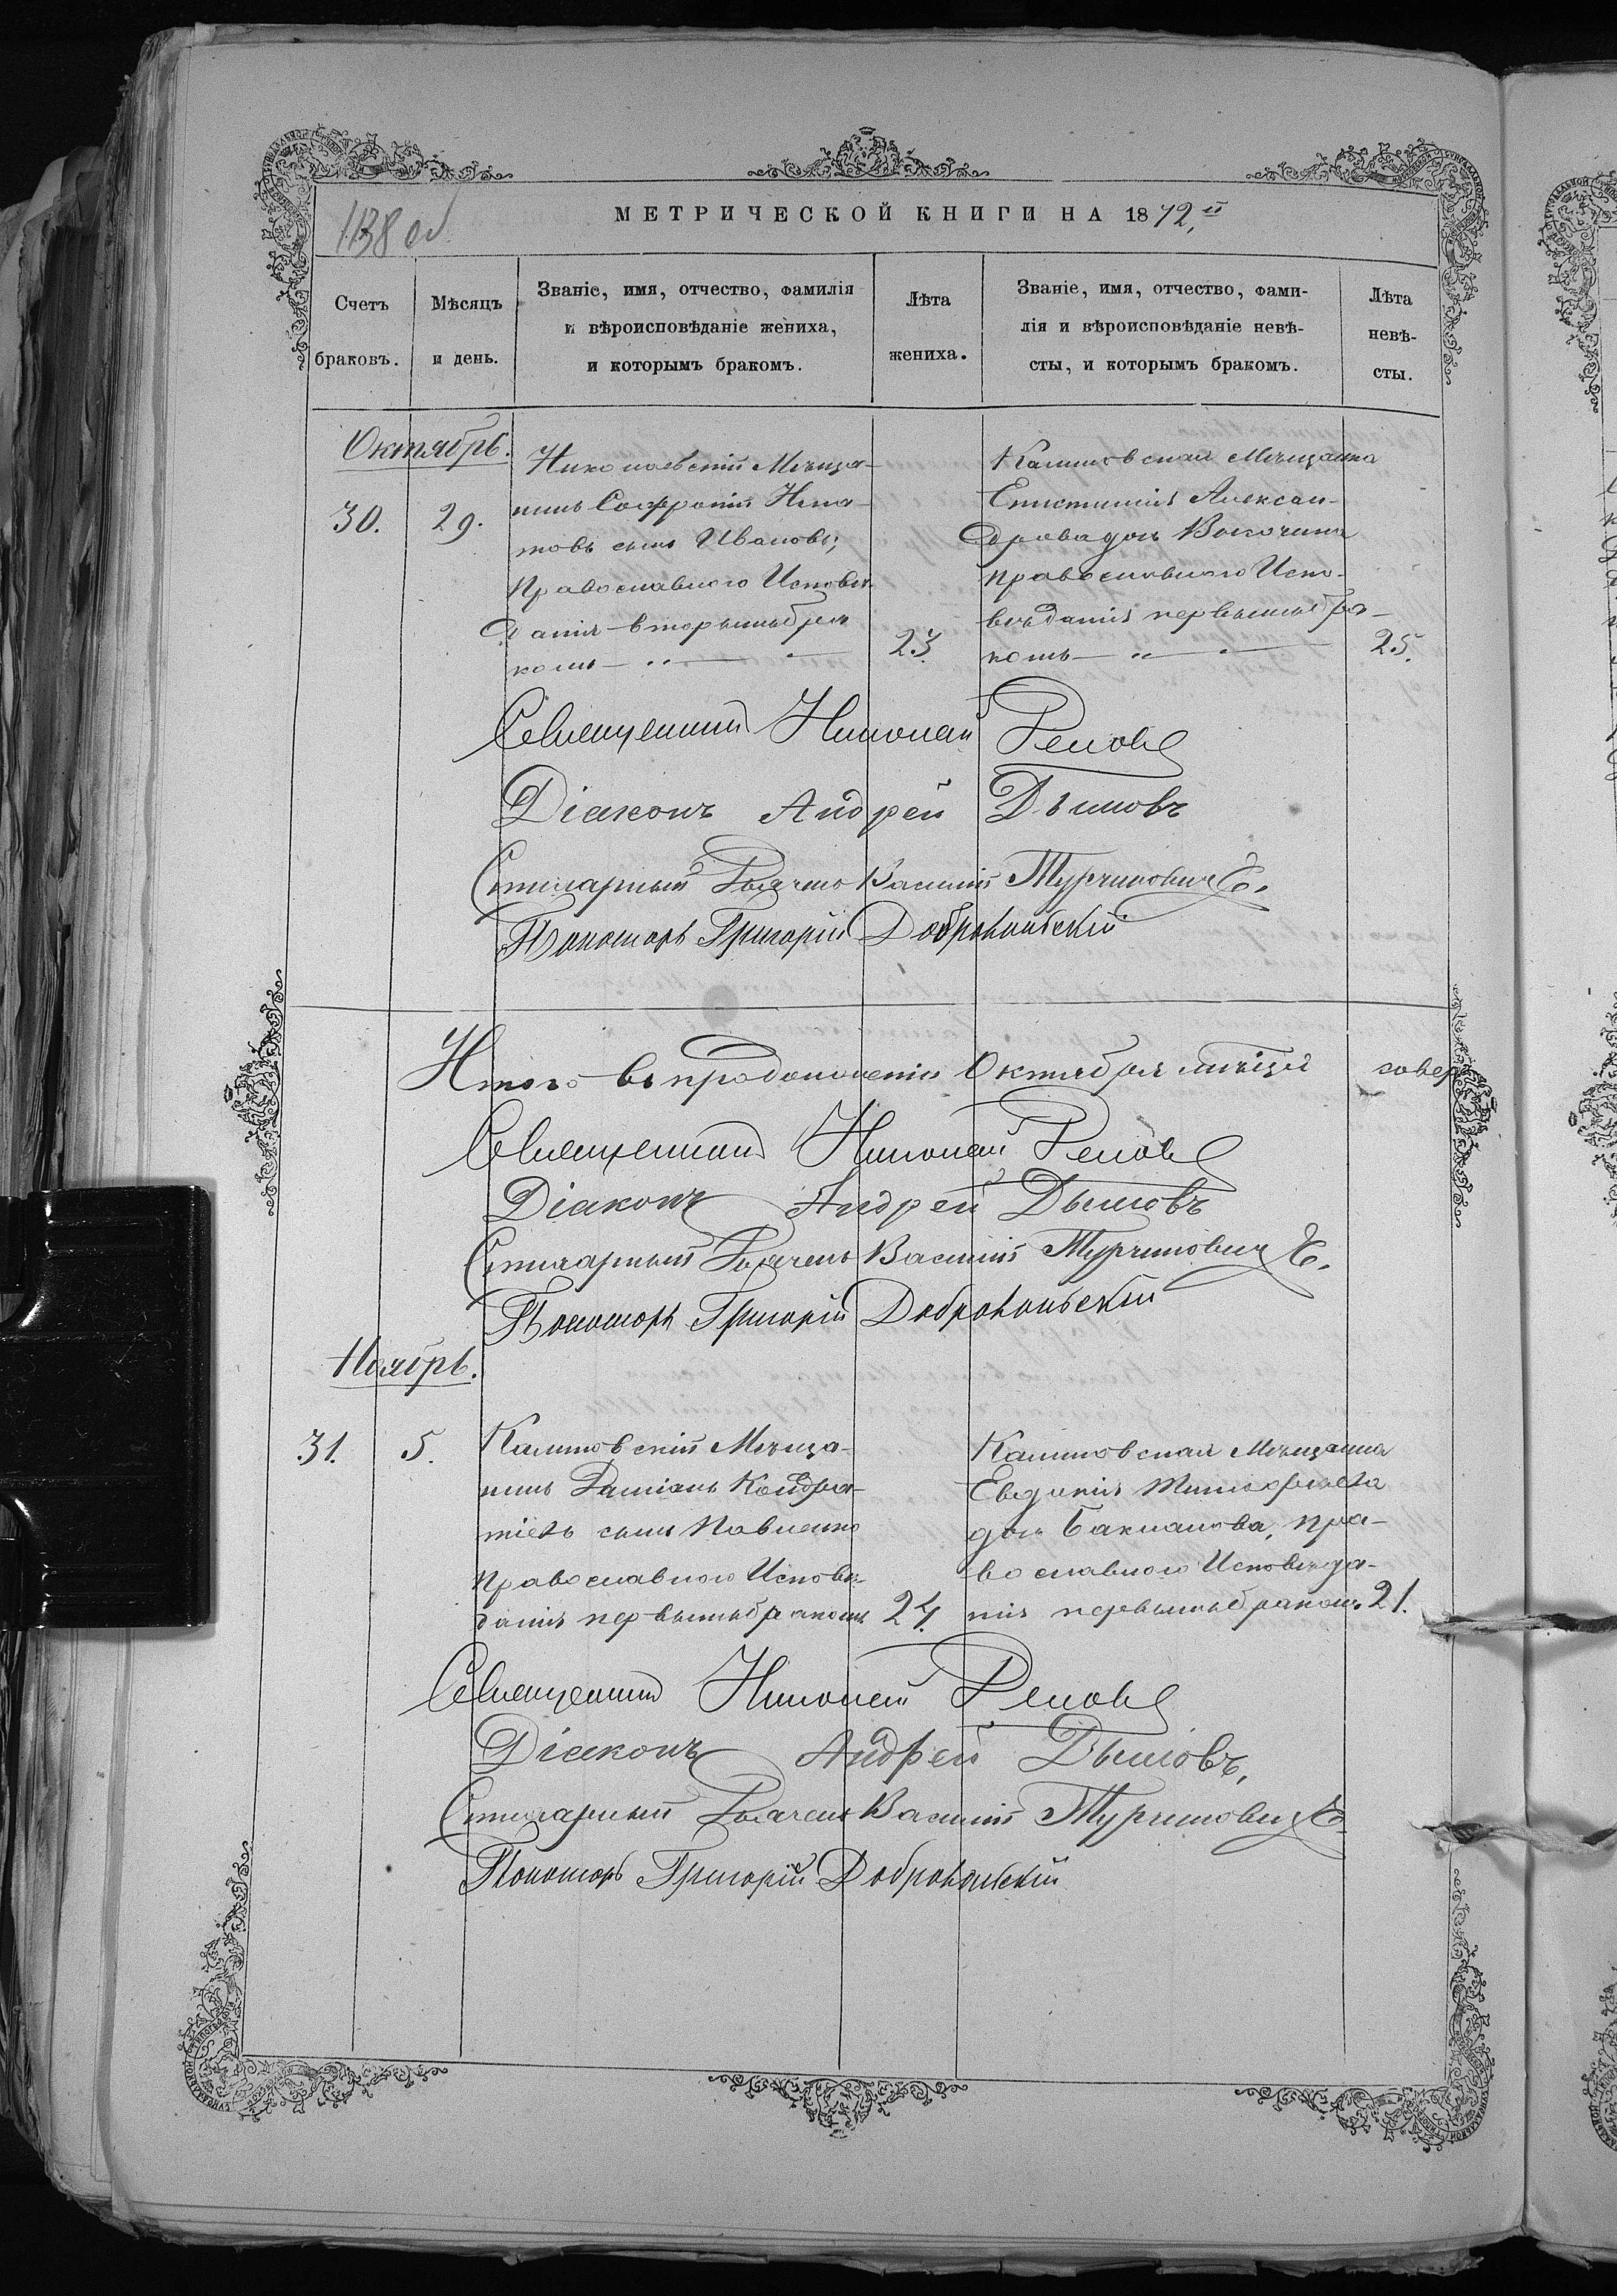 138 об
МЕТРИЧЕСКОЙ КНИГИ НА 1872,й
Счетъ браковъ.
Мѣсяцъ и день.
Званіе, имя, отчество, фамилія
и вѣроисповѣданіе жениха,
и которымъ бракомъ.
Лѣта
жениха.
Званіе, имя, отчество, фами-
лія и вѣроисповѣданіе невѣ-
сты, и которымъ бракомъ.
Лѣта
невѣ-
сты.
Октябрь.
30.
29.
Никопольскій Мѣща-
нинъ Софроній Игна-
товъ сынъ Ивановъ;
Православнаго Исповѣ-
данія вторымъ бра-
комъ
23.
Мѣщанка
Епистимія Алексан-
дрова дочь
православнаго Испо-
вѣданія первымъ бра-
комъ
25.
Священникъ Николай
Діаконъ Андрей Дымовъ
Стихарный Дьячекъ Василій Турчиновичъ
Пономарь Григорій Добровольскій
Итого въ продолженіи Октября мѣсяца совер
Священникъ Николай
Діаконъ Андрей Дымовъ
Стихарный Дьячекъ Василій Турчиновичъ
Пономарь Григорій Добровольскій
Ноябрь.
31.
5.
Мѣща-
нинъ Даміанъ Кондра-
тіевъ сынъ Павленко
Православнаго Исповѣ-
данія первымъ бракомъ
24.
Мѣщанка
Евдокія Тимофеева
дочь Бакланова, пра-
вославнаго Исповѣда-
нія первымъ бракомъ
21.
Священникъ Николай
Діаконъ Андрей Дымовъ,
Стихарный Дьячекъ Василій Турчиновичъ
Пономарь Григорій Добровольскій